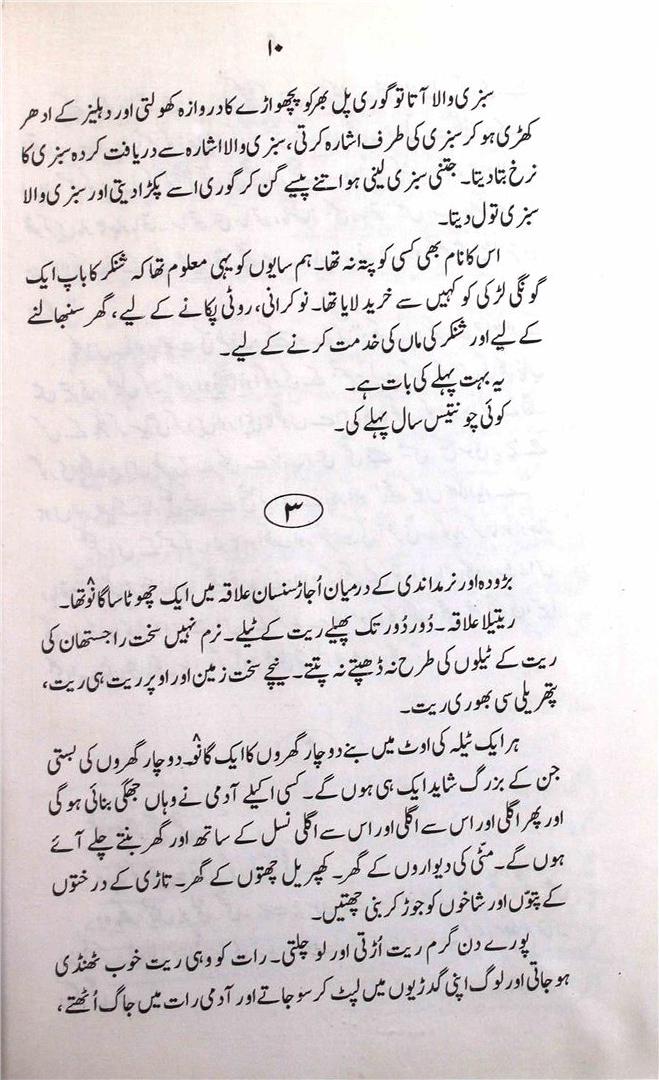 ۱۰
سبزی والا آتا تو گوری پل بھر کو پچھواڑے کا دروازہ کھولتی اور دہلیز کے ادھر
کھڑی ہو کر سبزی کی طرف اشارہ کرتی، سبزی والا اشارہ سے دریافت کردہ سبزی کا
نرخ بتا دیتا۔ جتنی سبزی لینی ہو اتنے پیسے گن کر گوری اسے پکڑا دیتی اور سبزی والا
سبزی تول دیتا۔
اس کا نام بھی کسی کو پتہ نہ تھا۔ ہم سایوں کو یہی معلوم تھا کہ شنکر کا باپ ایک
گونگی لڑکی کو کہیں سے خرید لایا تھا۔ نوکرانی، روٹی پکانے کے لیے، گھر سنبھالنے
کے لیے اور شنکر کی ماں کی خدمت کرنے کے لیے۔
یہ بہت پہلے کی بات ہے۔
کوئی چونتیس سال پہلے کی۔
۳
بڑودہ اور نرمدا ندی کے درمیان اُجاڑ سنسان علاقہ میں ایک چھوٹا سا گانو تھا۔
ریتیلا علاقہ۔ دُور دُور تک پھیلے ریت کے ٹیلے۔ نرم نہیں سخت راجستھان کی
ریت کے ٹیلوں کی طرح نہ ڈھیتے نہ پتتے۔ نیچے سخت زمین اور اوپر ریت ہی ریت،
پتھریلی سی بھوری ریت۔
ہر ایک ٹیلہ کی اوٹ میں بنے دو چار گھروں کا ایک گانو۔ دو چار گھروں کی بستی
جن کے بزرگ شاید ایک ہی ہوں گے۔ کسی اکیلے آدمی نے وہاں جھگی بنائی ہوگی
اور پھر اگلی اور اس سے اگلی اور اس سے اگلی نسل کے ساتھ اور گھر بنتے چلے آئے
ہوں گے۔ مٹی کی دیواروں کے گھر۔ کھپریل چھتوں کے گھر۔ تاڑی کے درختوں
کے پتوں اور شاخوں کو جوڑ کر بنی چھتیں۔
پورے دن گرم ریت اُڑتی اور لو چلتی۔ رات کو وہی ریت خوب ٹھنڈی
ہو جاتی اور لوگ اپنی گدڑیوں میں لپٹ کر سو جاتے اور آدمی رات میں جاگ اُٹھتے،